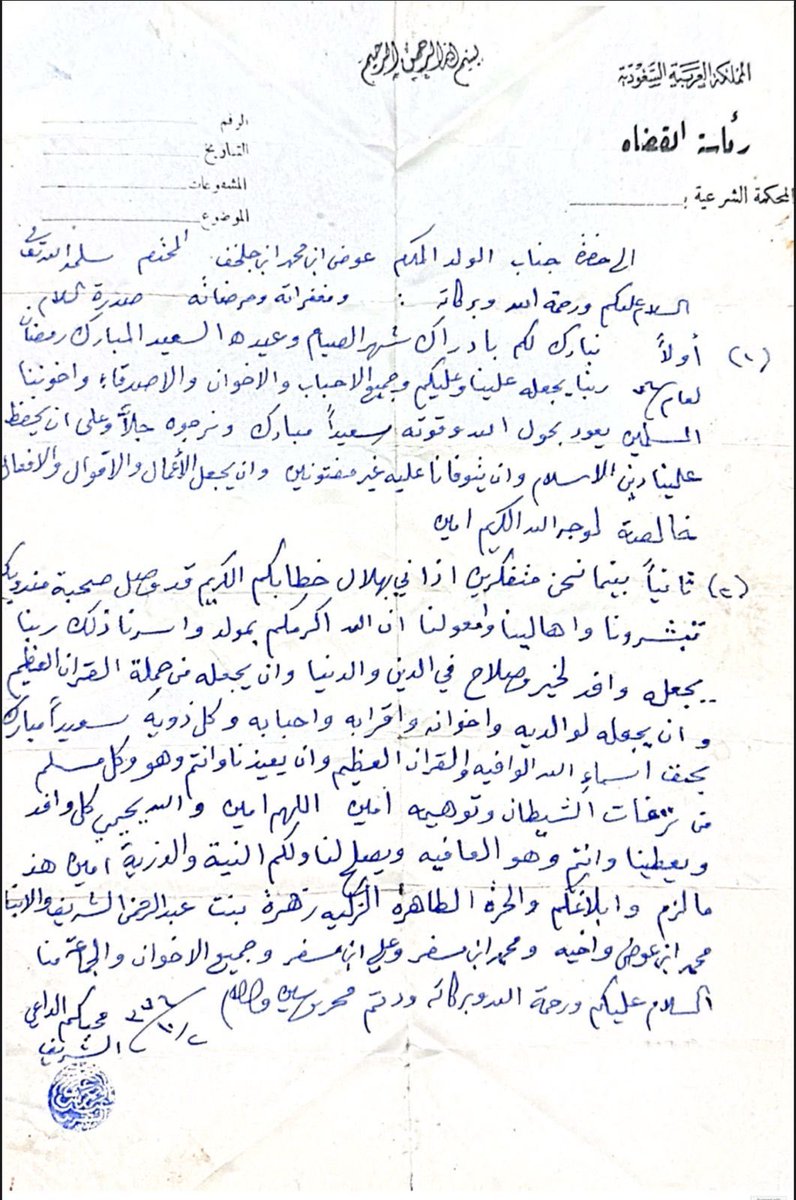 بسم الله الرحمن الرحيم
المملكة العربية السعودية
رئاسة القضاه
المحكمة الشرعية ب
الرقم
التاريخ
المشفوعات
الموضوع
الى حضرة جناب الولد المكرم عوض ابن محمد ابن جلخف المحترم سلمه الله تعالى
السلام عليكم ورحمة الله وبركاته : ومغفراته ومرضاته صدرة للسلام
(١) أولاً نبارك لكم بادراك شهر الصيام وعيدها السعيد المبارك رمضان
لعام ربنا يجعله علينا وعليكم وجميع الاحباب والاخوان والاصدقاء واخوننا
المسلمين يعود بحول الله وقوته سعيداً مبارك ونرجوه جلاً وعلى ان يحفظ
علينا دين الاسلام وان يتوفانا عليه غير مفتونين وان يجعل الأعمال والاقوال والافعال
خالصة لوجه الله الكريم امين
(٢) ثانياً بينما نحن متفكرين اذاني بهلال خطابكم الكريم قد وصل صحبة مندوبكم
تبشرونا واهالينا وامعولنا ان الله اكرمكم بمولد واسرنا ذلك ربنا
يجعله وافد لخير وصلاح في الدين والدنيا وان يجعله من حملة القران العظيم
وان يجعله لوالديه واخوانه واقرابه واحبابه وكل ذويه سعيداً مبارك
بحق اسماء الله الوافيه والقران العظيم وان يعيذنا وانتم وهو وكل مسلم
من نزغات الشيطان وتوهيمه امين اللهم امين والله يحيي كل وافد
ويعطينا وانتم وهو العافيه ويصلح لنا ولكم النية والذرية امين هذ
مالزم وابلاغكم والحرة الطاهرة الزكيه زهرة بنت عبدالرحمن الشريف والابنا
محمد ابن عوض واخيه ومحمد ابن مسفر وعلي ابن مسفر وجميع الاخوان والجماعة منا
السلام عليكم ورحمة الله وبركاته ودمتم محروسين والسلام
محبكم الداعي
الشريف